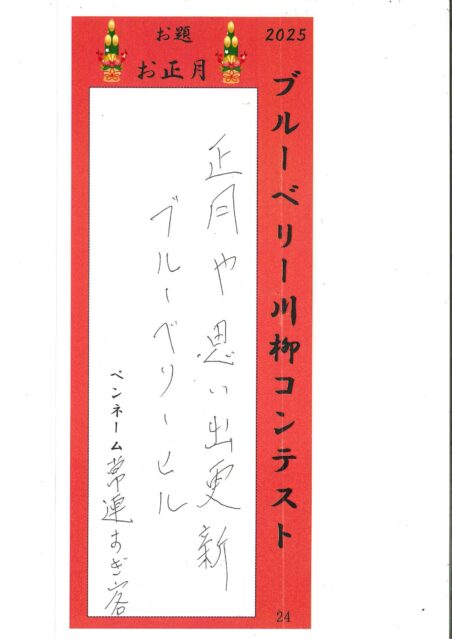 2025
ブルーベリー川柳コンテスト
24
お題
お正月
正月や思い出更新
ブルーベリーヒル
ペンネーム 常連すぎ客